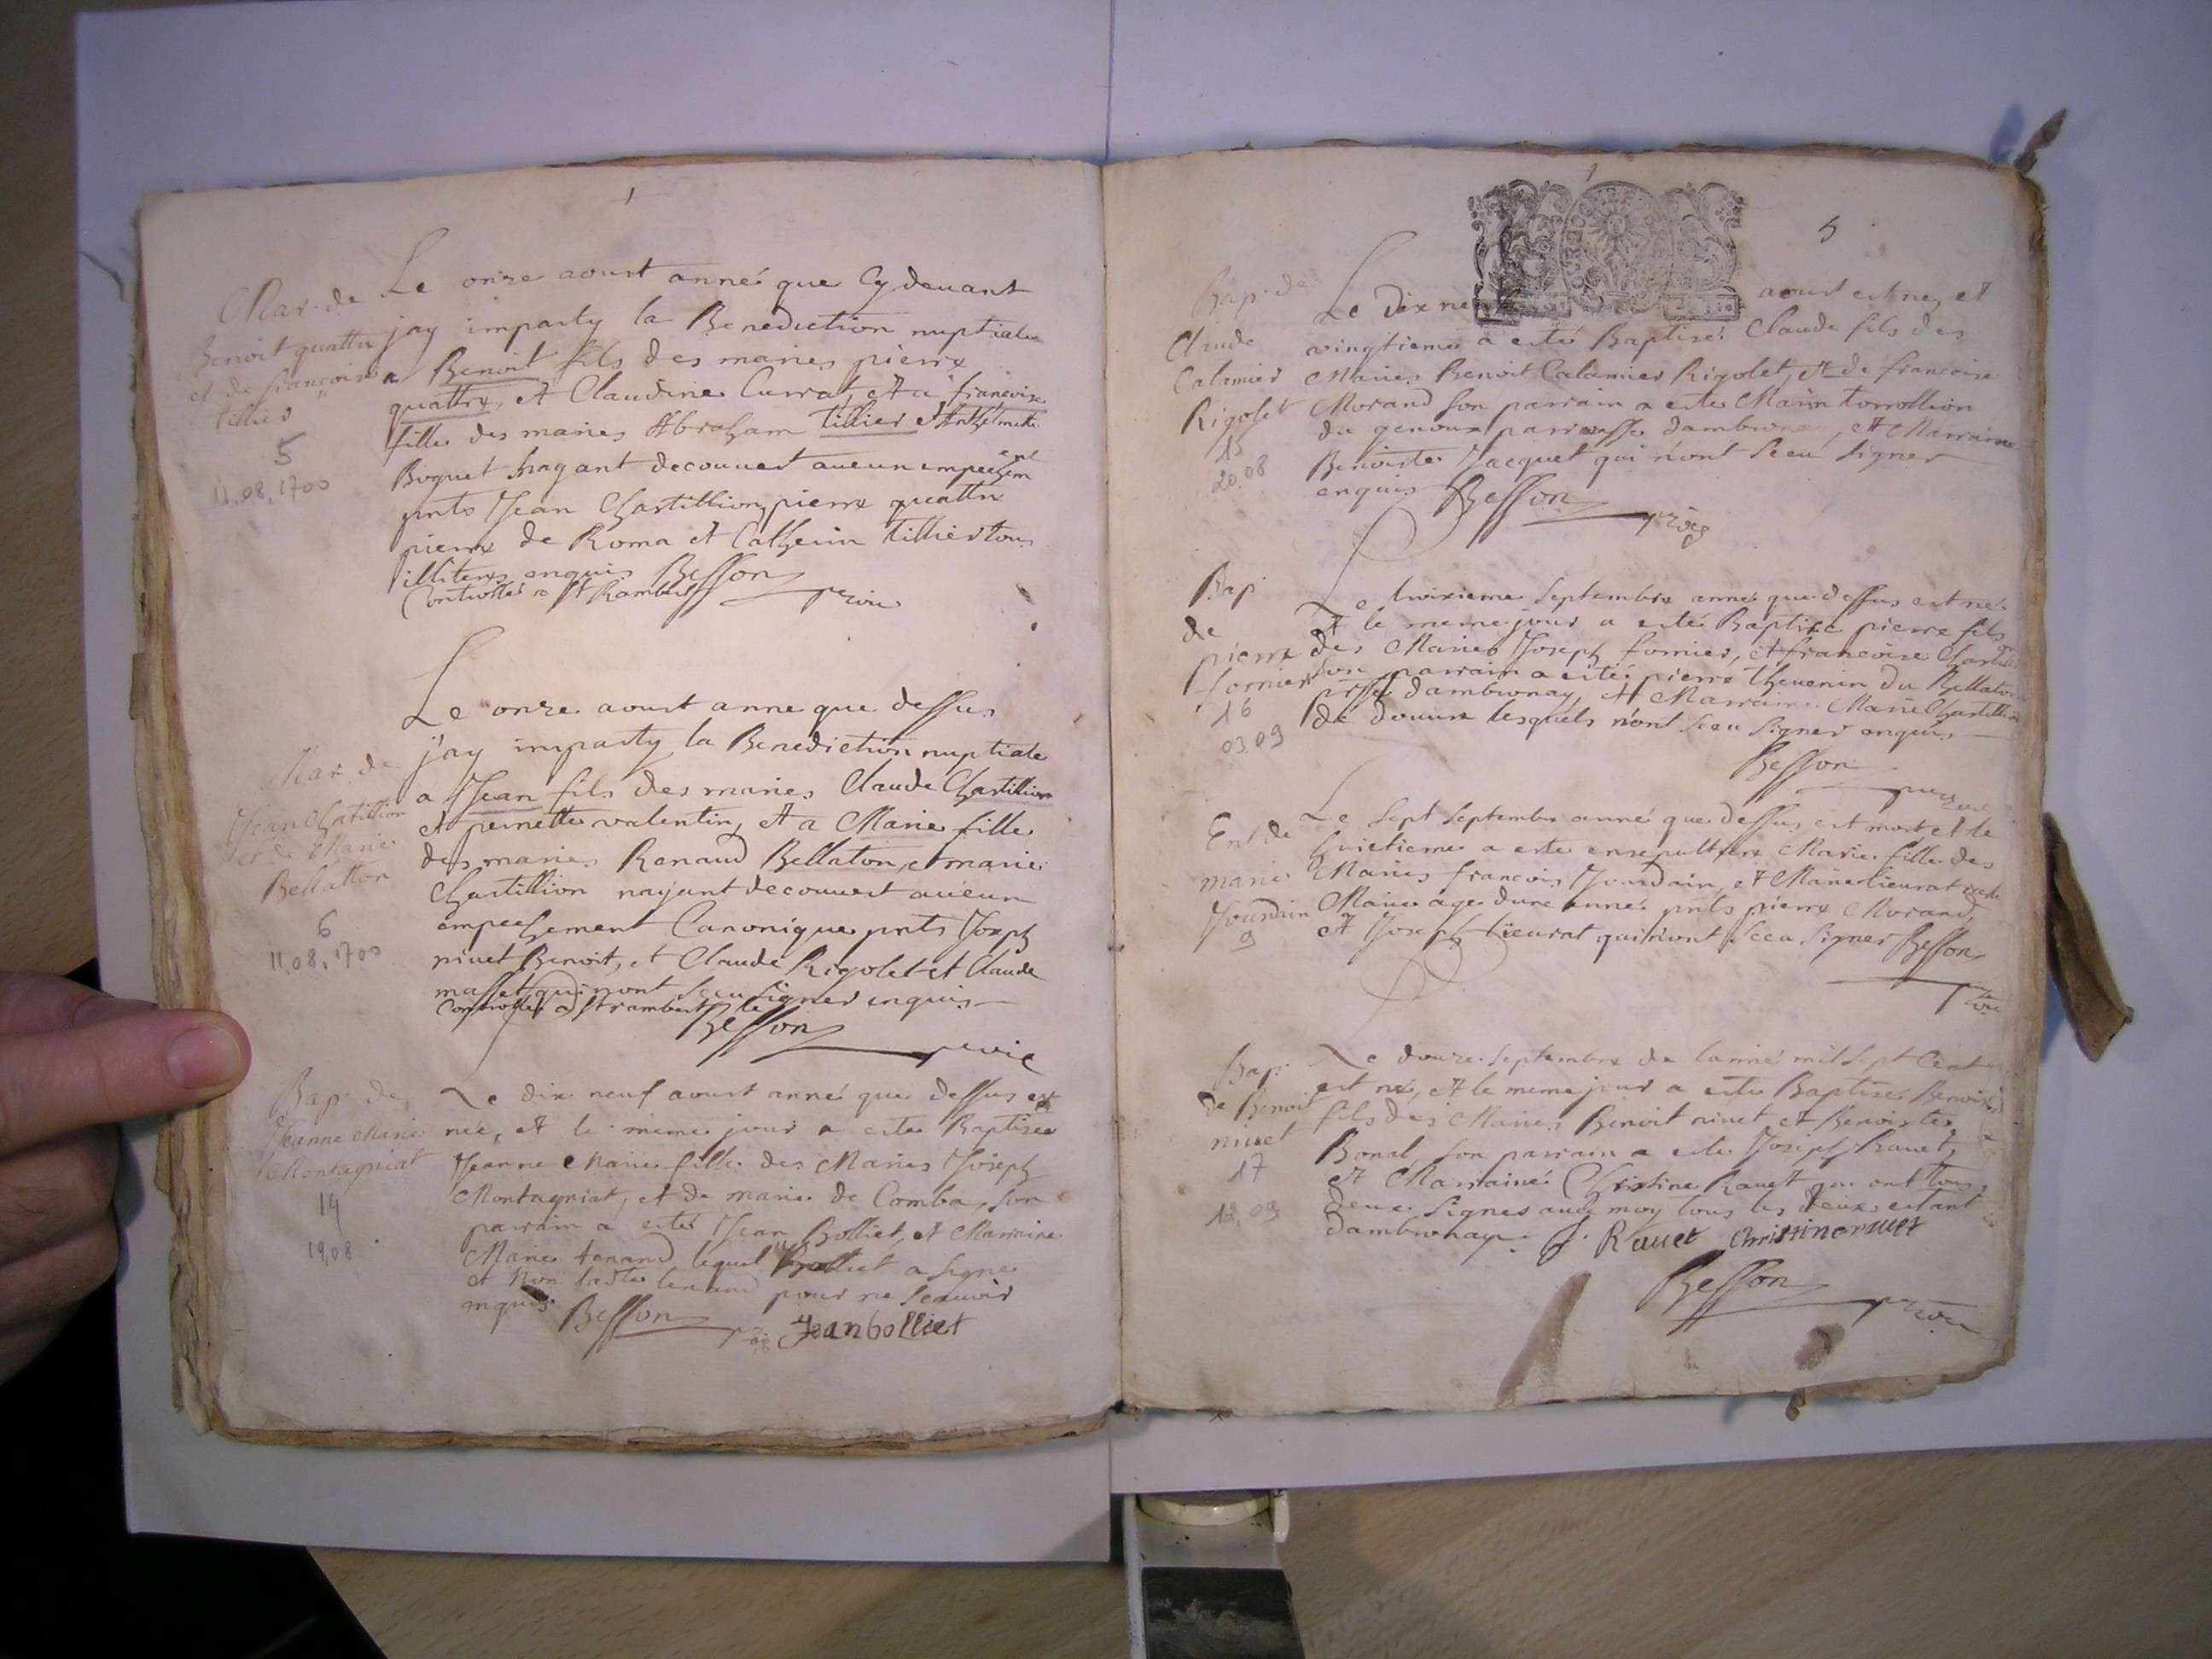 1
Mar. de
Benoit quattre
et de françoise
tillier
5
11.08.1700
Le onze aoust anneé que Cy devant
jay imparty la Benediction nuptiale
a Benoit fils des maries pierre
quattre, et Claudine Currat, et a françoise
fille des maries Abraham tillier et
Boquet nayant decouvert aucun empechem
ent
pnts Jean Chastillion, pierre quattre
pierre de Roma et Catherin tillier tous
illiteres enquis Besson
Controllé a St Rambert
Mar de
Jean Chatillion
et de Marie
Bellatton
6
11.08.1700
Le onze aoust anne que dessus
j'ay imparty la Benediction nuptiale
a Jean fils des maries Claude Chastillion
et pernette valentin, et a Marie fille
des maries Renaud Bellaton, et marie
Chastillion nayant decouvert aucun
empechement Canonique pnts Joseph
nivet Benoit, et Claude Rigolet et Claude
masset qui nont sceu signer enquis
Controllé a St rambert le
Besson
Bap. de
Jeanne Marie
Montagniat
14
19,08
Le dix neuf aoust anné que dessus est
neé, et le meme jour a esté Baptisee
Jeanne Marie fille des Maries Joseph
Montagniat, et de marie de Comba, son
parrain a esté Jean Bolliet, et Marraine
Marie tenand lequel Bolliet a signe
et Non ladte tenand pour ne scavoir
enquis Besson
Jean bolliet
1
5
Bap. de
Claude
Calamier
Rigolet
15
20.08
Le Dix ne aoust est ne, et
vingtieme a esté Baptisé Claude fils des
Maries Benoit Calamier Rigolet, et de francoise
Morand son parrain a esté Marin torrollion
du genoux parroisse dambronay, et Marraine
Benoiste Jacquet qui n'ont sceu signer
enquis Besson
Bap
de
pierre
fornier
16
03.09
Le troisieme septembre anné que dessus est né
et le meme jour a esté Baptisé pierre fils
des Maries Joseph fornier, et francoise
son parrain a esté pierre thevenin du
psse dambronay, et Marraine Marie Chastillion
de douvre lesquels n'ont sceu signer enquis
Besson
Ent de
marie
Jourdain
9
Le sept septembre anné que dessus est mort et le
huictieme a este ensepulture Marie fille des
Maries francois Jourdain, et Marie lieurat
Marie age dune anné pnts pierre Morand,
et Joseph lieurat qui n'ont sceu signer Besson
Bap.
de Benoit
nivet
17
12.09
Le douze septembre de lanné mil sept Cent
est né, et le meme jour a esté Baptisé Benoit
fils des Maries Benoit nivet et Benoiste
Bonat, son parrain a esté Joseph Ravet,
et Marraine Christine Ravet qui ont tous
deux signes avec moy tous les deux estant
dambronay. J. Ravet Christine ravet
Besson